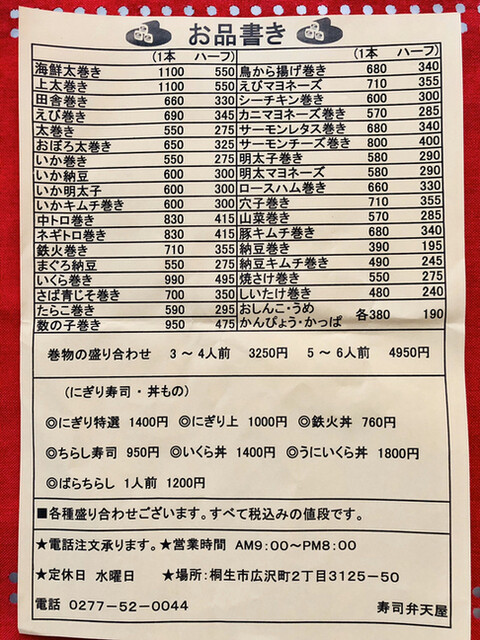 お品書き
(1本 ハーフ) (1本 ハーフ)
海鮮太巻き 1100 550 鳥から揚げ巻き 680 340
上太巻き 1100 550 えびマヨネーズ 710 355
田舎巻き 660 330 シーチキン巻き 600 300
えび巻き 690 345 カニマヨネーズ巻き 570 285
太巻き 550 275 サーモンレタス巻き 680 340
おぼろ太巻き 650 325 サーモンチーズ巻き 800 400
いか巻き 550 275 明太子巻き 580 290
いか納豆 600 300 明太マヨネーズ 580 290
いか明太子 600 300 ロースハム巻き 660 330
いかキムチ巻き 600 300 穴子巻き 710 355
中トロ巻き 830 415 山菜巻き 570 285
ネギトロ巻き 830 415 豚キムチ巻き 680 340
鉄火巻き 710 355 納豆巻き 390 195
まぐろ納豆 550 275 納豆キムチ巻き 490 245
いくら巻き 990 495 焼さけ巻き 550 275
さば青じそ巻き 700 350 しいたけ巻き 480 240
たらこ巻き 590 295 おしんこ・うめ
数の子巻き 950 475 かんぴょう・かっぱ 各380 190
巻物の盛り合わせ 3～4人前 3250円 5～6人前 4950円
(にぎり寿司・丼もの)
◎にぎり特選 1400円 ◎にぎり上 1000円 ◎鉄火丼 760円
◎ちらし寿司 950円 ◎いくら丼 1400円 ◎うにいくら丼 1800円
◎ばらちらし 1人前 1200円
■各種盛り合わせございます。すべて税込みの値段です。
★電話注文承ります。★営業時間 AM9:00～PM8:00
★定休日 水曜日 ★場所:桐生市広沢町2丁目3125-50
電話 0277-52-0044 寿司弁天屋